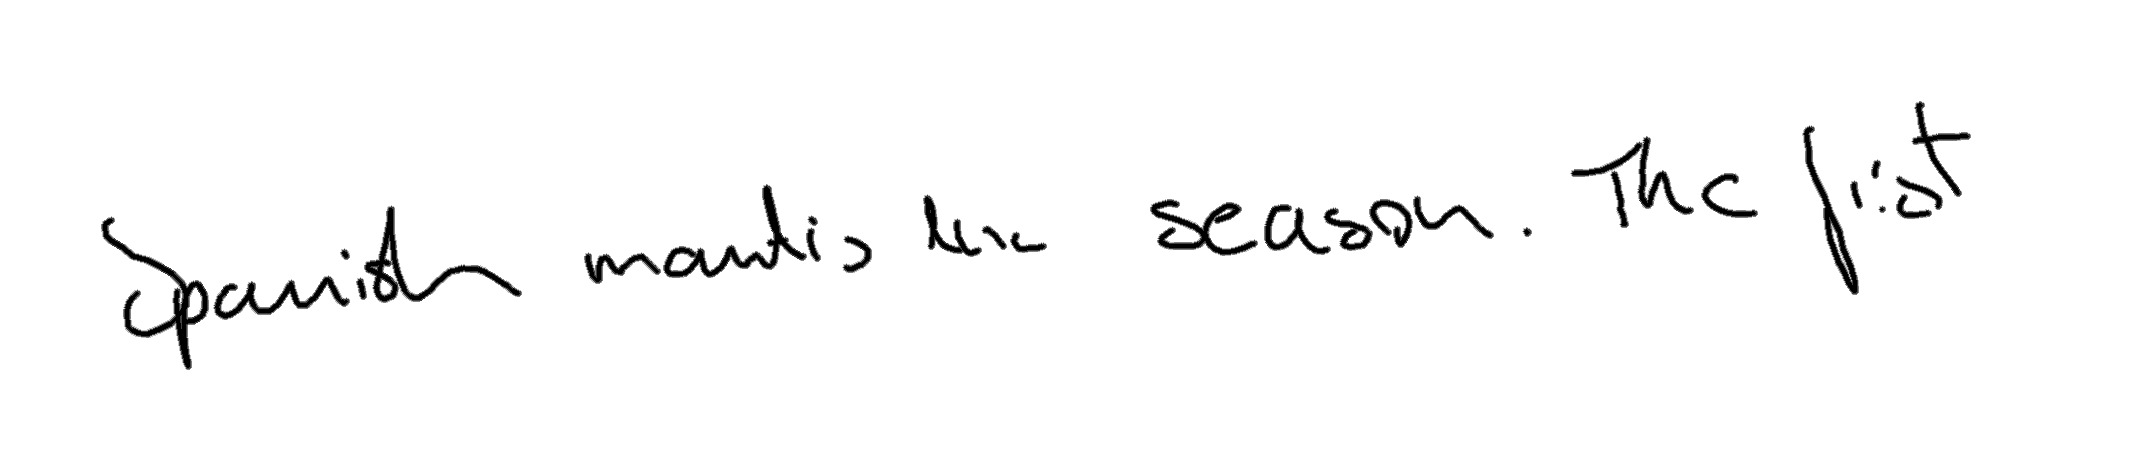 Spanish mantis season. The first